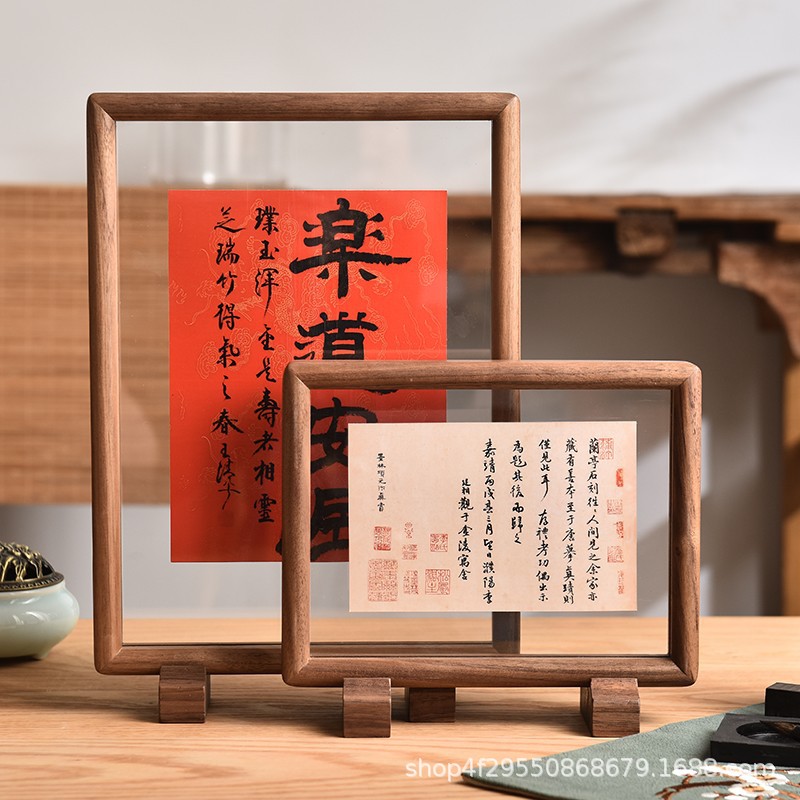 楽道安居
璞玉渾金是壽者相靈
芝瑞竹得氣之春
蘭亭石刻往々人間見之余家亦
藏有善本至于唐摹真蹟則
僅見此耳 存禮考功偶出示
為題其後而歸之
嘉靖丙戌春三月望日濮陽李
廷相觀于金陵寓舍
shop4f29550868679.1688.com